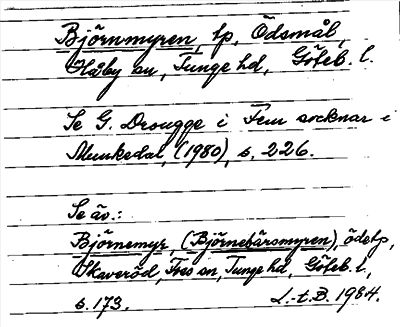 Björnmyren, tp, Ödsmål,
Håby sn, Tunge hd, Göteb. l.
Se G. Drougge i Fem socknar i
Munkedal, (1980), s. 226.
Se äv.:
Björnemyr, (Björnebärsmyren), ödetp,
Skaveröd, Foss sn, Tunge hd, Göteb. l,
s. 173. L.-t.B. 1984.